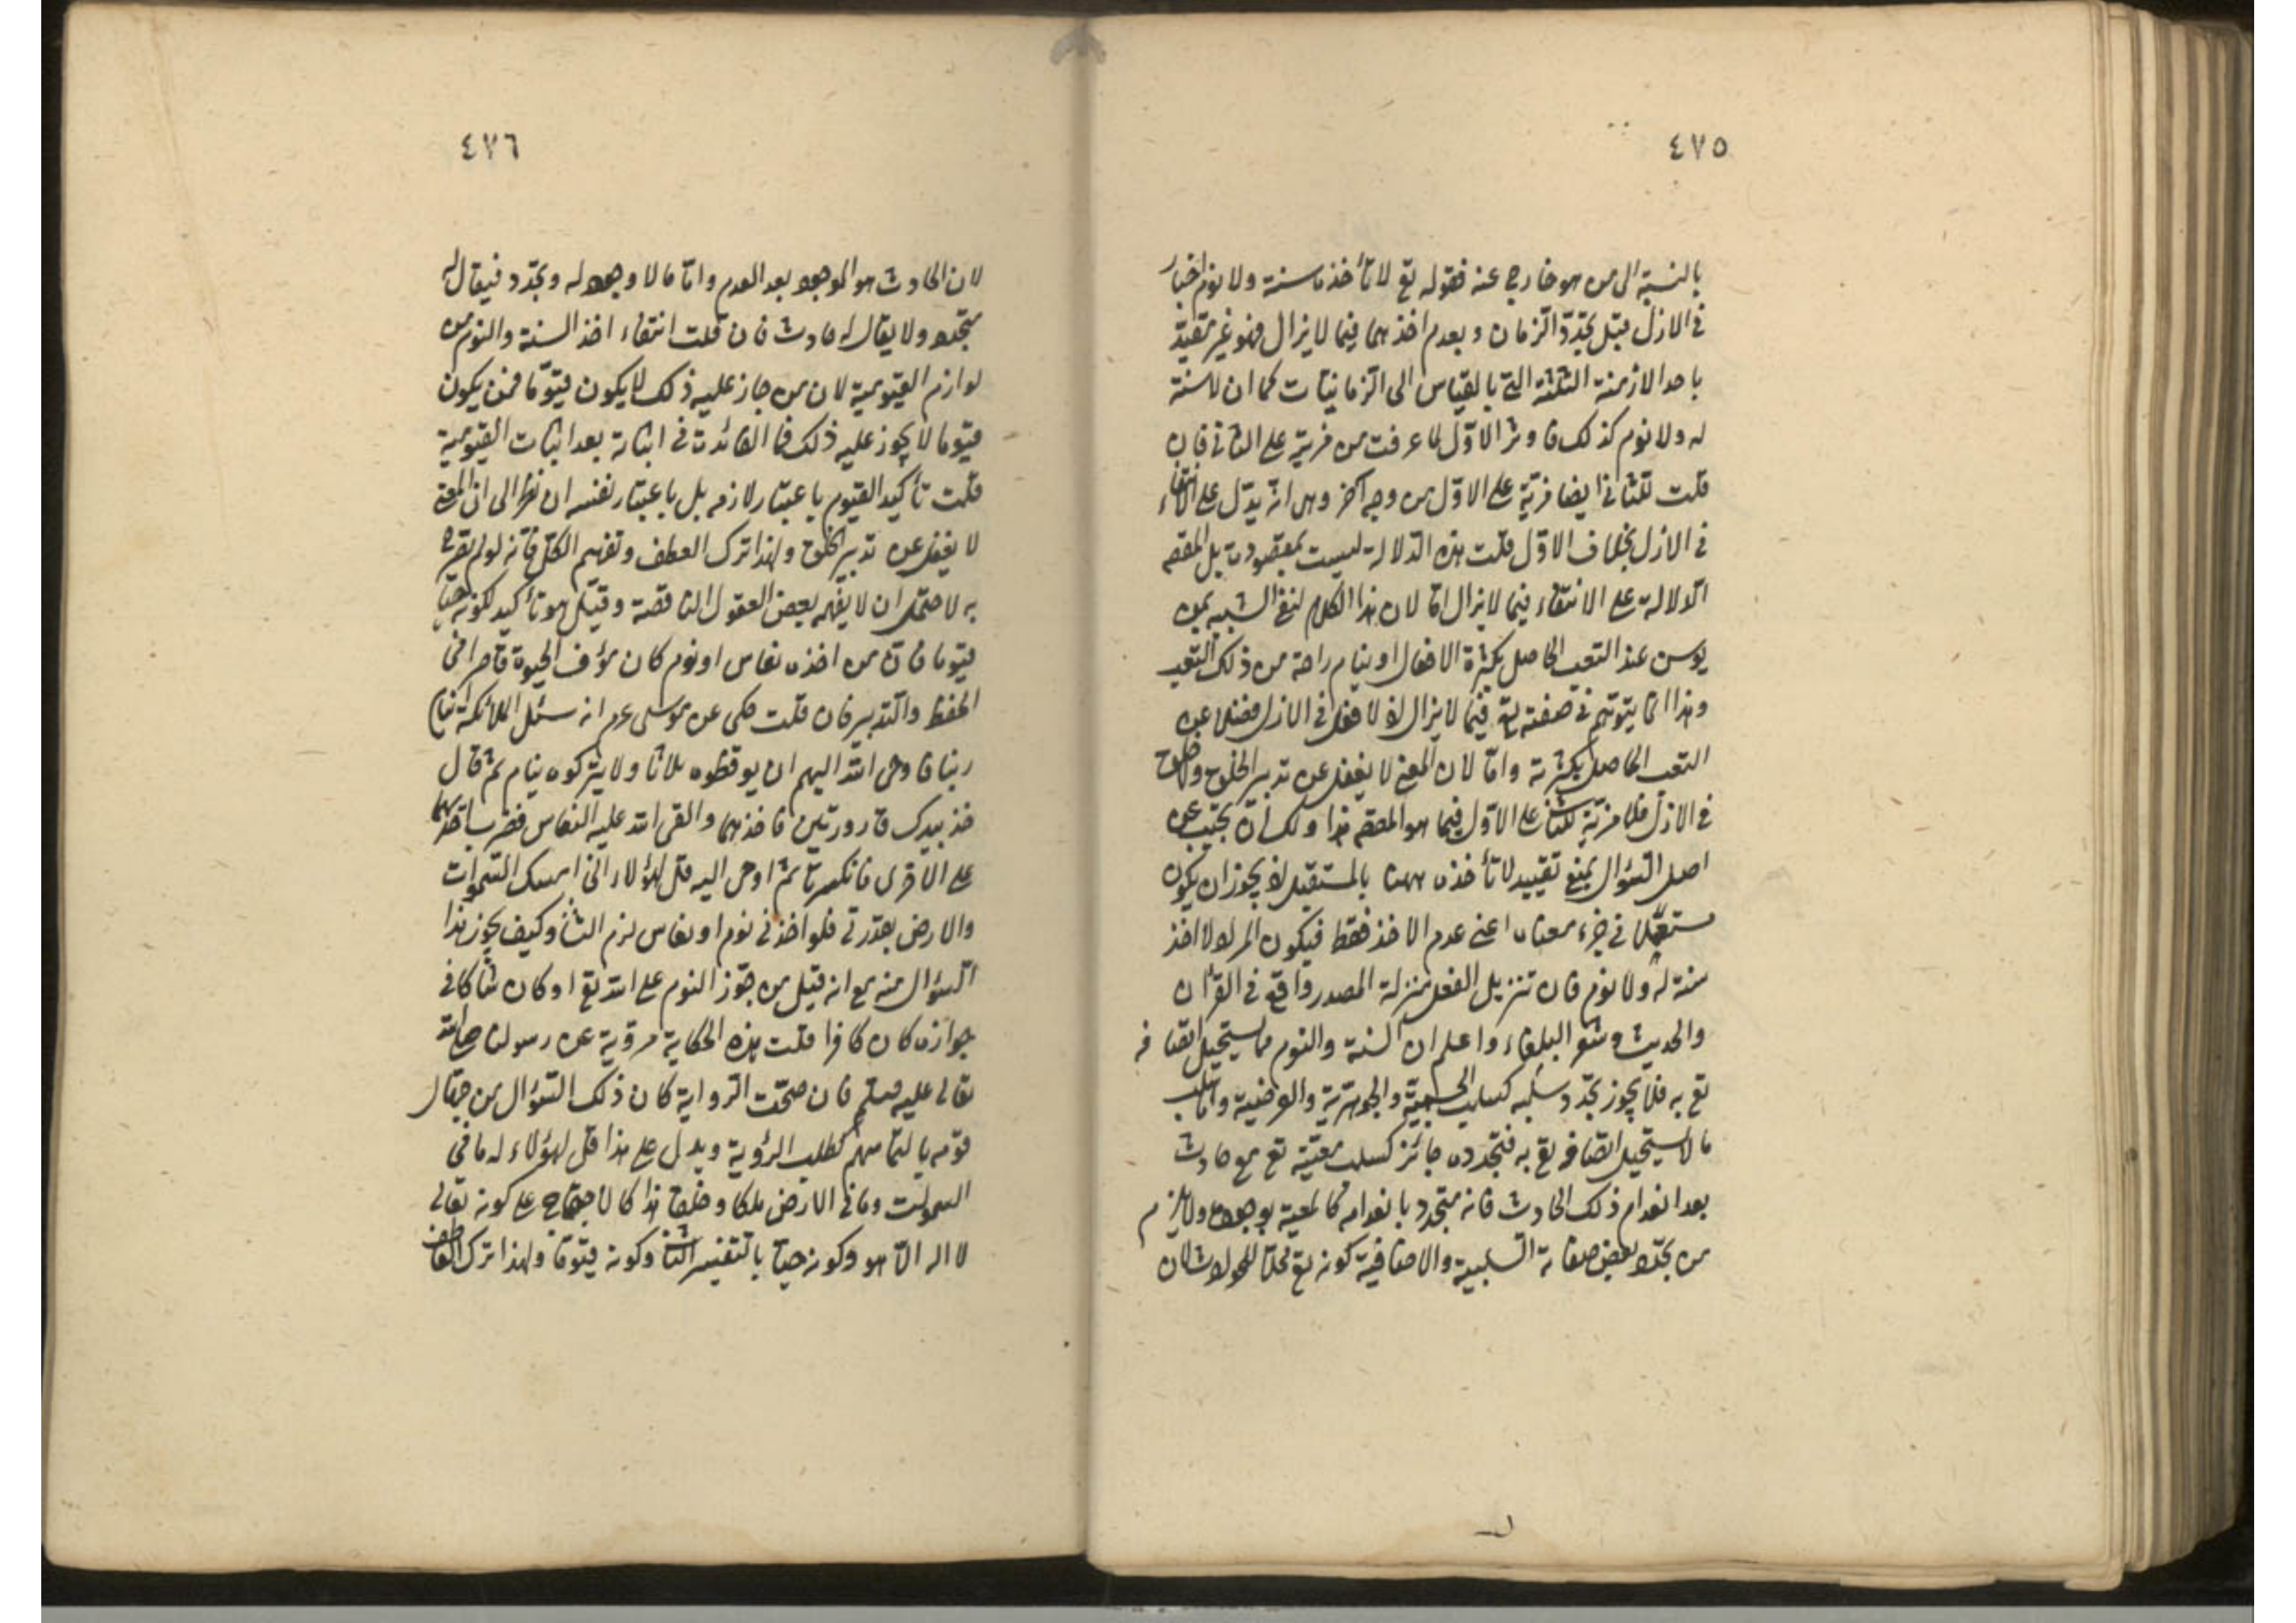 ٤٧٥
بالنسبة الى من هو خارج عنه فقوله تع لا تأخذه سنة ولا نوم اخبار
فى الازل قبل تجدّد الزمان وبعدم اخذهما فيما لا يزال فهو غير مقيّد
باحد الازمنة الثلثة التى بالقياس الى الزمانيات كما ان لا سنة
له ولا نوم كذلك فاوثر الاوّل لما عرفت من مزية على الثانى فان
قلت للثانى ايضا مزيّة على الاوّل من وجه آخر وهى انه يدّل على الانتفاء
فى الازل بخلاف الاوّل قلت هذه الدلالة ليست بمقصودة بل المقصد
الدلالة على الانتفاء فيما لا يزال امّا لان هذا الكلام لنفى الشبيه بمن
يوسن عند التعب الحاصل بكثرة الافعال او ينام راحة من ذلك التعب
وهذا انما يتوهّم فى صفته تع فيما لا يزال اذ لا فعل فى الازل فضلا عن
التعب الحاصل بكثرته وامّا لان المعنى لا يغفل عن تدبير الخلق ولا خلق
فى الازل فلا مزيّة للثانى على الاوّل فيما هو المقصد هذا ولك ان تجيب عن
اصل السؤال بمنع تقييد لا تأخذه ههنا بالمستقبل اذ يجوز ان يكون
مستعملا فى جزء معناه اعنى عدم الاخذ فقط فيكون المراد لا اخذ
سنة له ولا نوم فان تنزيل الفعل منزلة المصدر واقع فى القرآن
والحديث وشعر البلغاء واعلم ان السنة والنوم مما يستحيل اتصافه
تع به فلا يجوز تجدّد سلبه كسلب الجسمية والجوهرية والعرضية وامّا سلب
ما لا يستحيل اتصافه تع به فتجدده جائز كسلب معيّته تع مع حادث
بعد انعدام ذلك الحادث فانه متجدد بانعدامه كالمعية بوجوده ولا يلزم
من تجدّد بعض صفاته السلبية والاضافية كونه تع محلّا للحوادث لان
٤٧٦
لان الحادث هو الموجود بعد العدم وامّا ما لا وجود له وتجدّد فيقال له
متجدّد ولا يقال له حادث فان قلت انتفاء اخذ السنة والنوم من
لوازم القيومية لان من جاز عليه ذلك لا يكون قيّوما فمن يكون
قيّوما لا يجوز عليه ذلك فما الفائدة فى اثباته بعد اثبات القيومية
قلت تأكيد القيوم باعتبار لازمه بل باعتبار نفسه ان نظر الى ان المعنى
لا يغفل عن تدبير الخلق ولهذا ترك العطف وتفهيم الكل فانه لو لم يصرح
به لاحتمل ان لا يفهمه بعض العقول الناقصة وقيل هو تأكيد لكونه حيّا
قيّوما فان من اخذه نعاس او نوم كان مؤف الحيوة قاصرا فى
الحفظ والتدبير فان قلت حكى عن موسى عم انه سئل الملائكة اينام
ربنا فاوحى الله اليهم ان يوقظوه ثلاثا ولا يتركوه ينام ثم قال
خذ بيدك قارورتين فاخذهما والقى الله عليه النعاس فضرب باحديهما
على الاخرى فانكسرتا ثم اوحى اليه قل لهؤلاء انى امسك السموات
والارض بقدرتى فلو اخذنى نوم او نعاس لزم التا وكيف يجوز هذا
السؤال منه مع انه قيل من جوّز النوم على الله تع او كان شاكا فى
جوازه كان كافرا قلت هذه الحكاية مروية عن رسولنا صلى الله
تعالى عليه وسلم فان صحّت الرواية كان ذلك السؤال من جهّال
قومه بالتماسهم كطلب الرؤية ويدل على هذا قل لهؤلاء له ما فى
السموات وما فى الارض ملكا وخلقا هذا كالاحتجاج على كونه تعالى
لا اله الّا هو وكونه حيّا بالتفسير الثانى وكونه قيّوما ولهذا ترك العاطف